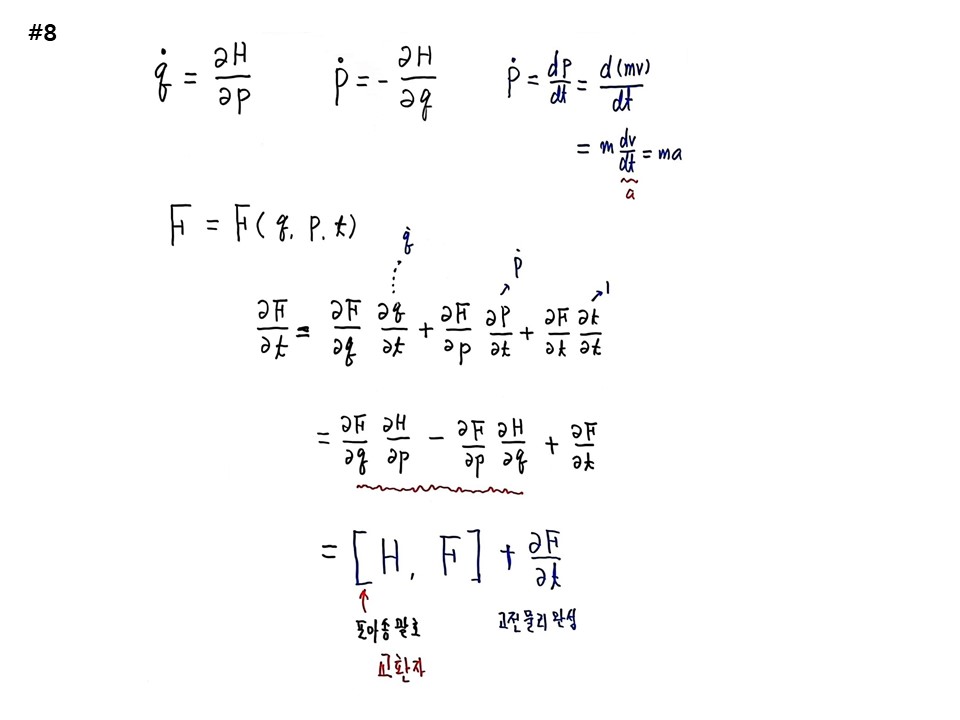 #8
q̇ = ∂H/∂p   ṗ = - ∂H/∂q   ṗ = dp/dt = d(mv)/dt
= m dv/dt = ma
a
F = F(q, p, t)
q̇   ṗ   1
∂F/∂t = ∂F/∂q ∂q/∂t + ∂F/∂p ∂p/∂t + ∂F/∂t ∂t/∂t
= ∂F/∂q ∂H/∂p - ∂F/∂p ∂H/∂q + ∂F/∂t
= [H, F] + ∂F/∂t
↑
포아송 괄호   고전물리 완성
교환자